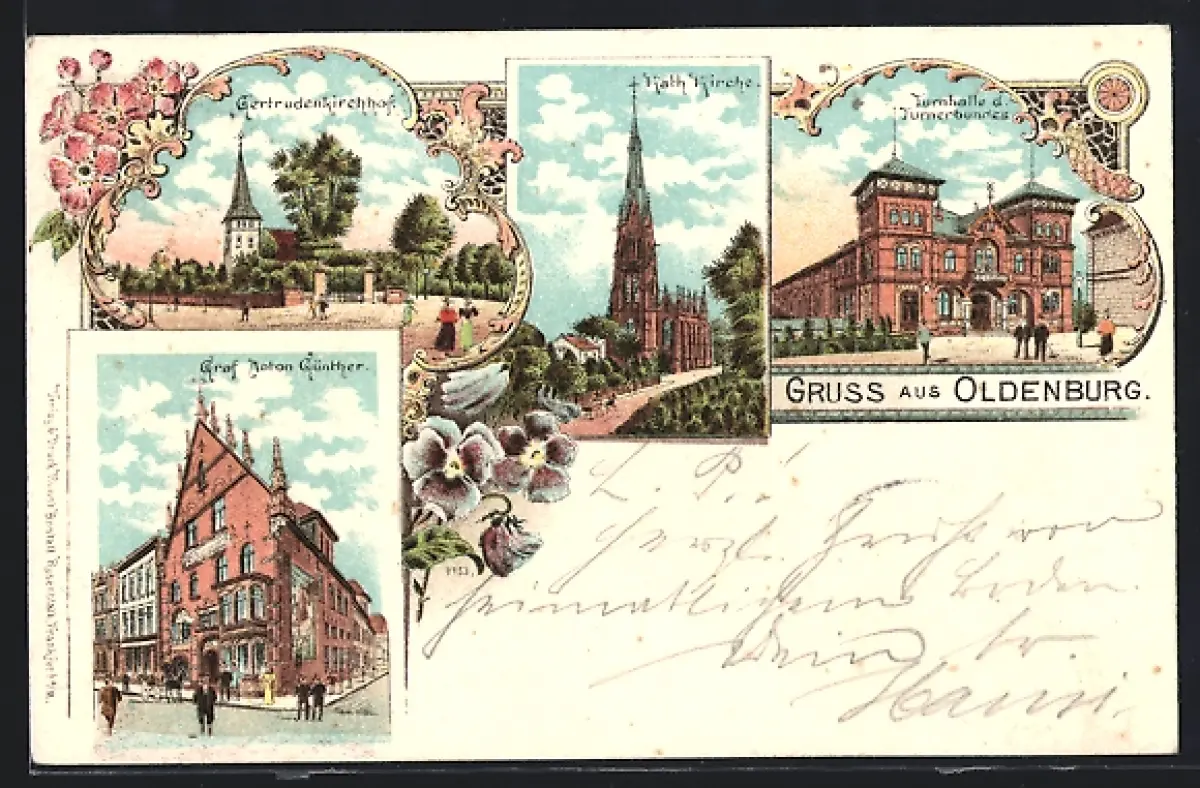 Gertrudenkirchhof.
Kath Kirche.
Turnhalle d.
Turnerbundes
GRUSS AUS OLDENBURG.
Graf Anton Günther.
L. P.!
Herzl. Gruß von
heimatlichem Boden.
Dein
Hanni.